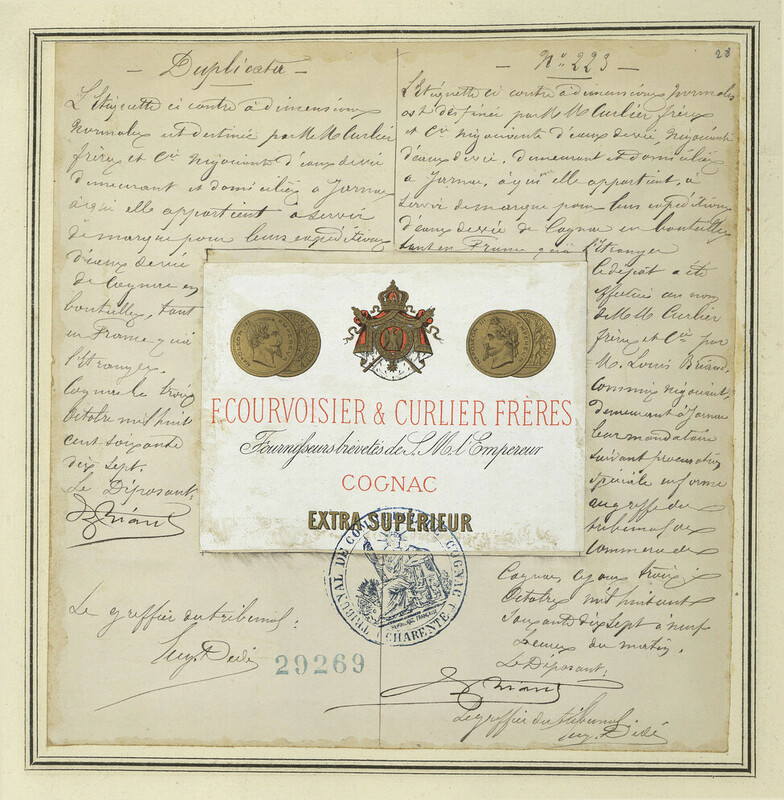 — Duplicata —
L'Etiquette ci contre à dimensions
Normales est destinée par M.M. Curlier
frères et Cie Négociants d'eaux de vie
demeurant et domiciliés à Jarnac
à qui elle appartient à servir
de marque pour leurs expéditions
d'eaux de vie
de Cognac en
bouteilles, tant
en France qu'à
l'étranger.
Cognac le trois
Octobre mil huit
cent soixante
dix sept.
Le Déposant,
Le greffier du tribunal,
29269
— No 223 —
28
L'étiquette ci contre à dimensions Normales
est destinée par M.M. Curlier frères
et Cie négociants d'eaux de vie, négociants
d'eaux de vie, demeurant et domiciliés
à Jarnac, à qui elle appartient, à
servir de marque pour leurs expéditions
d'eaux de vie de Cognac en bouteilles
tant en France qu'à l'étranger
Le dépôt a été
effectué au nom
de M.M. Curlier
frères et Cie par
M. Louis Briand,
Commis négociant,
demeurant à Jarnac
leur mandataire
suivant procuration
spéciale en forme
au greffe du
tribunal de
commerce de
Cognac, ce jour trois
Octobre mil huit cent
soixante dix sept à neuf
heures du matin.
Le Déposant,
Le greffier du tribunal
F. COURVOISIER & CURLIER FRÈRES
Fournisseurs brévetés de S. M. l'Empereur
COGNAC
EXTRA SUPÉRIEUR
TRIBUNAL DE COMMERCE DE COGNAC
RÉPUBLIQUE FRANÇAISE
(CHARENTE)